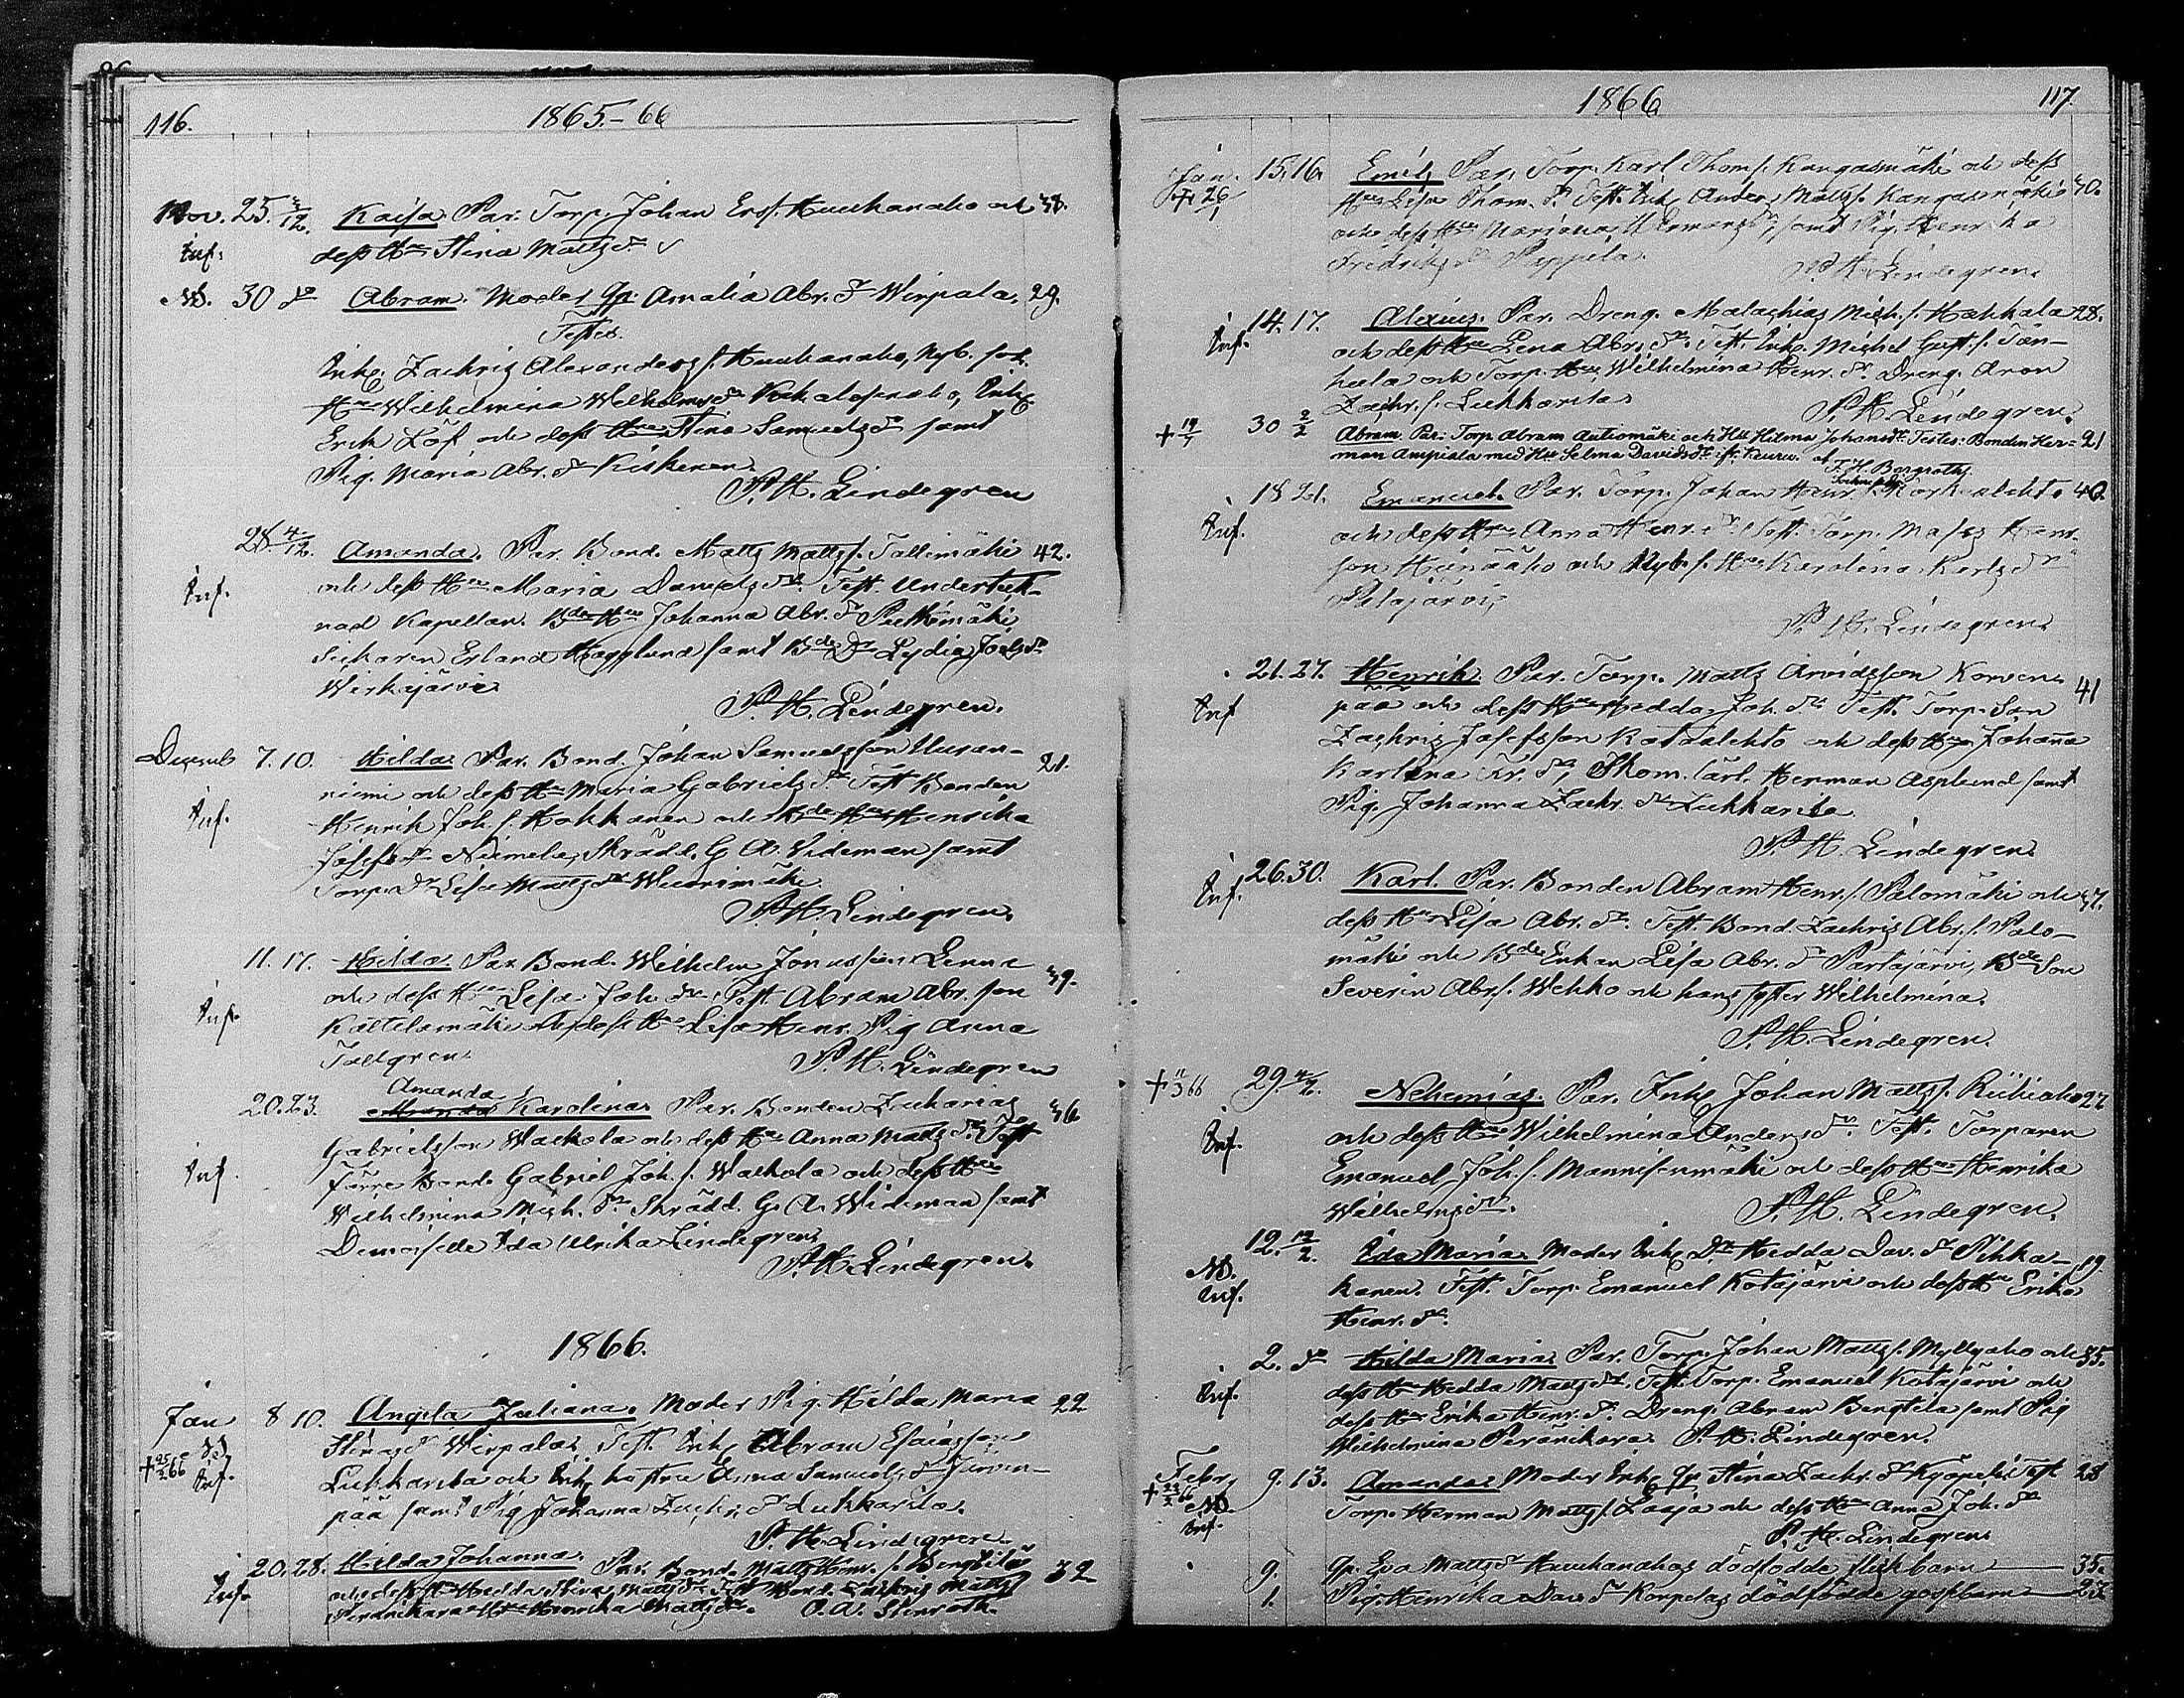 116.
1865.-66
Nov. 25. 3/12. Kaisa. Par. Torp. Johan Ers/. Huuhanaho och 38.
Inf. dess Hu Stina Mattsdr
NB. 30 do Abram. Moder Qp. Amalia Abr. dr Wirpala. 29.
Testes.
Inh. Zachris Alexanders/. Huuhanaho, Nyb. son
Hu Wilhelmina Wilhelmsdr Inh.
Erik Löf och dess Hu Stina Samuelsdr samt
Pig. Maria Abr. dr Kiskenen.
P. H. Lindegren
28 4/12. Amanda. Par. Bond. Matts Matts/. Tallimäki 42.
Inf. och dess Hu Maria Danielsdr. Test. Underteck-
nad Kapellan. Bde Hu Johanna Abr. dr Putkimäki,
Erland Hägglund samt Bde Dr Lydia Joelsdr
Wirkajärvi
P. H. Lindegren.
Decemb 7. 10. Hilda. Par. Bond. Johan Samuelsson Uusan- 21.
niemi och dess Hu Maria Gabrielsdr. Test. Bonden
Inf. Henrik Joh. /. Hakkanen och Bde Hu Henrika
Josefsdr Niemelä, Skrädd. G A. Wideman samt
Torp. Dr Lisa Mattsdr Wuorimäki
P. H. Lindegren.
11. 17. Hilda. Par. Bond. Wilhelm Jonasson Lenna 39.
Inf. och dess Hu Lisa Joh. dr. Test. Abram Abr. son
Kattilamäki och dess Hu Lisa Henr. Pig Anna
Tallgren.
P. H. Lindegren
Amanda
20. 23. Karolina. Par. Bonden Zacharias 36
Gabrielsson Wackola och dess Hu Anna Mattsdr. Test
Inf. Förre Bond. Gabriel Joh. /. Wackola och dess Hu
Wilhelmina Mich. dr. Skrädd. G. A. Wideman samt
Demoiselle Ida Ulrika Lindegren
P. H. Lindegren.
1866.
Jan 8 10. Angela Juliana. Moder Pig. Hilda Maria 22
+ 25/2 66 NB Inf. Stinasdr Wirpalas, Test. Inh. Abram Esaiasson
Lukkarila och Inh. hustru Anna Samuelsdr Järven-
pää samt Pig Johanna Zachr. dr Lukkarila.
P. H. Lindegren.
20. 28. Hilda Johanna. Par. Bond. Matts Henr. /. Bengtila 32
Inf. och dess Hu Hedda Stina Mattsdr. Test. Bond. Zachris Matts/
Peränikara Hu Henrika Mattsdr. O. W. Stenroth.
1866
117.
Jan. 15. 16. Emil, Par. Torp. Karl Thom/. Kangasmäki och dess 30.
+ 26/1 Hu Lisa Thom. dr. Test. Inh. Anders Matts/. Kangasmäki
och dess Hu Mariana Hermansdr, samt Pig. Henrika
Fredriksdr Pappila.
P. H. Lindegren.
14. 17. Alexius. Par. Dreng. Malachias Mich. /. Hakkala 28.
Inf. och dess Hu Lena Abr. dr. Test. Inh. Michel Gust. /. Tan-
hula och Torp. Hu, Wilhelmina Henr. dr. Dreng. Aron
Zachr. /. Lukkarila
P. H. Lindegren.
+ 19/7 30 2/2 Abram. Par: Torp. Abram Autiomäki och Hu Hilma Johansdr. Testes: Bonden Her- 21
man Ampiala med Hu Selma Davidsdr ifr. Keuru. af F. H. Bergroth,
18 21. Emanuel. Par. Torp. Johan Henr. /. Korkealehto 40
Inf. och dess Hu Anna Henr. dr. Test. Torp. Henr-
son Heinäaho och Nyb. /. Hu Karolina Karlsdr
Patajärvi,
P. H. Lindegren.
21. 27. Henrik. Par. Torp. Matts Arvidsson Korven- 41
Inf pää och dess Hu Hedda Joh. dr. Test. Torp. Son
Zachris Josefsson Kotalehto och dess Hu Johanna
Karlina dr, Skom. Lärl. Herman Asplund samt
Pig. Johanna Zachr. dr Lukkarila
P. H. Lindegren.
26. 30. Karl. Par. Bonden Abram Henr. /. Palomäki och 37.
Inf. dess Hu Lisa Abr. dr. Test. Bond. Zachris Abr. /. Palo-
mäki och Bde Enkan Lisa Abr. dr Partajärvi, Bde Son
Severin Abr/. Wehko och hans syster Wilhelmina.
P. H. Lindegren.
+ 11/3 66 29. 4/2. Nehemias. Par. Inh. Johan Matts/. Riihiaho 27
Inf. och dess Hu Wilhelmina Andersdr. Test. Torparen
Emanuel Joh. /. Mannisenmäki och dess Hu Henrika
Wilhelmsdr.
P. H. Lindegren.
12. 12/2. Ida Maria. Moder Inh. Dr Hedda Dav. dr Pihka- 19
NB. Inf. kanen. Test. Torp. Emanuel Kotajärvi och dess Hu Erika
Henr. dr.
2. do Hilda Maria. Par. Torp. Johan Matts/. Myllyaho och 35.
Inf. dess Hu Hedda Mattsdr. Test. Torp. Emanuel Kotajärvi och
dess Hu Erika Henr. dr. Dreng. Abram Bengtila samt Pig
Wilhelmina Peränikara. P. H. Lindegren.
Febr. 9. 13. Amanda. Moder Inh. Qp Stina Zachr. dr Kyöpeli Test 28
+ 23/2 66 NB. Inf. Torp. Herman Matts/. Laaja och dess Hu Anna Joh. dr
P. H. Lindegren
9. Qp. Eva Mattsdr Huuhanahos dödfödde flickbarn 35.
1. Pig. Henrika Dav. dr Korpelas dödfödde gossbarn 22